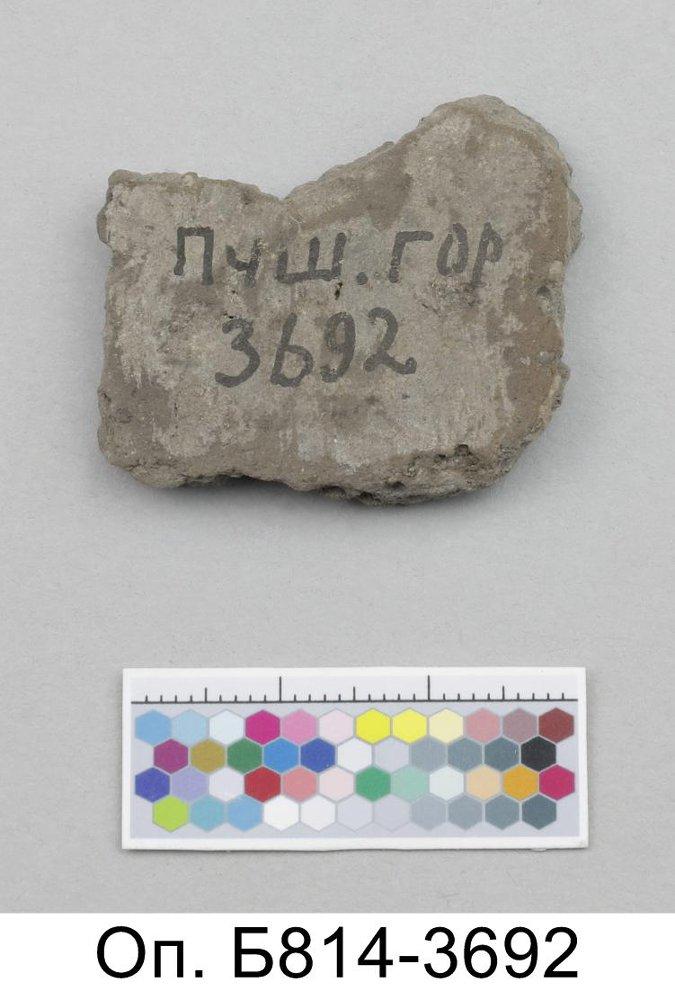 ПЧШ.ГОР
3692
Оп. Б814-3692